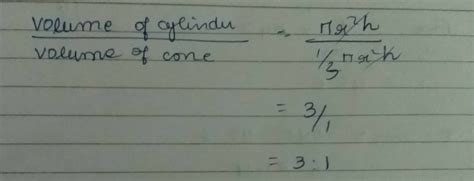 volume of cylindu = πr²h
volume of cone 1/3 πr²h
= 3/1
= 3:1